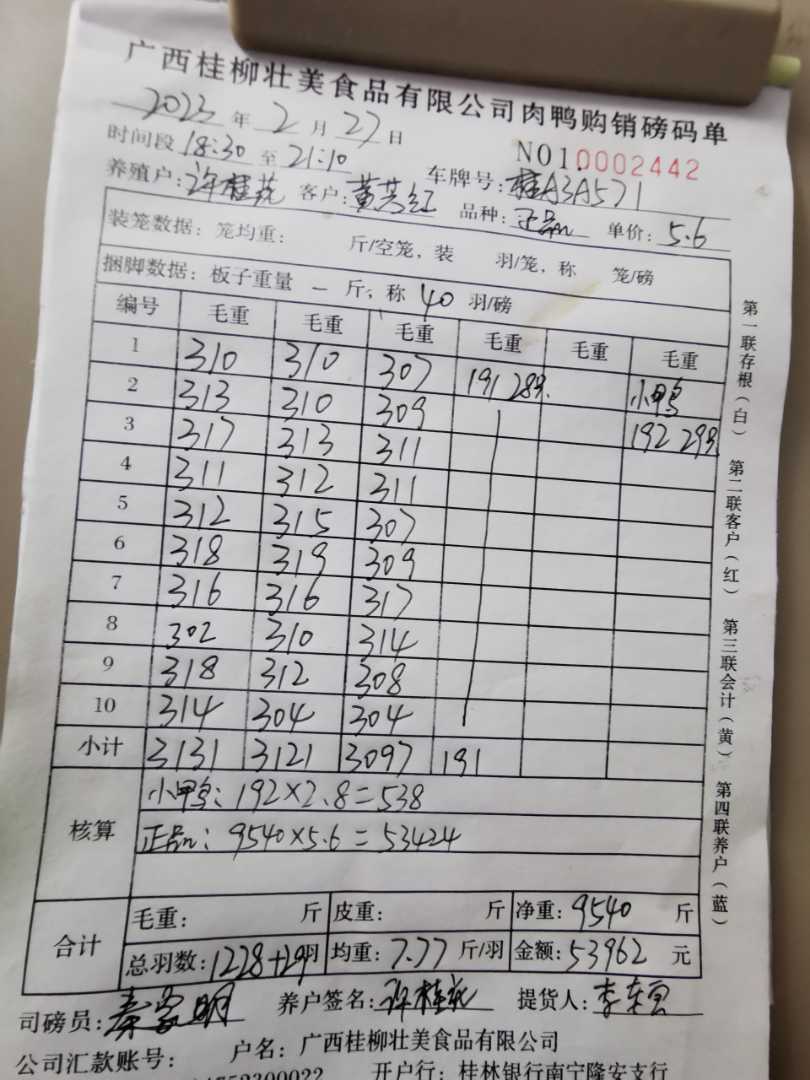 广西桂柳壮美食品有限公司肉鸭购销磅码单
2023 年 2 月 27 日
时间段 18:30 至 21:10 NO1.0002442
养殖户: 许桂花 客户: 黄芳红 车牌号: 桂A3A571
品种: 正品 单价: 5.6
装笼数据: 笼均重: 斤/空笼, 装 羽/笼, 称 笼/磅
捆脚数据: 板子重量 一 斤, 称 40 羽/磅
编号 毛重 毛重 毛重 毛重 毛重 毛重
1 310 310 307 191 28只 小鸭
2 313 310 309 192 29只
3 317 313 311
4 311 312 311
5 312 315 307
6 318 319 309
7 316 316 317
8 302 310 314
9 318 312 308
10 314 304 304
小计 3131 3121 3097 191
核算 小鸭: 192×2.8=538
正品: 9540×5.6=53424
合计 毛重: 斤 皮重: 斤 净重: 9540 斤
总羽数: 1228+29羽 均重: 7.77 斤/羽 金额: 53962 元
司磅员: 秦家明 养户签名: 许桂花 提货人: 李东
公司汇款账号: 户名: 广西桂柳壮美食品有限公司
开户行: 桂林银行南宁隆安支行
第一联存根(白) 第二联客户(红) 第三联会计(黄) 第四联养户(蓝)